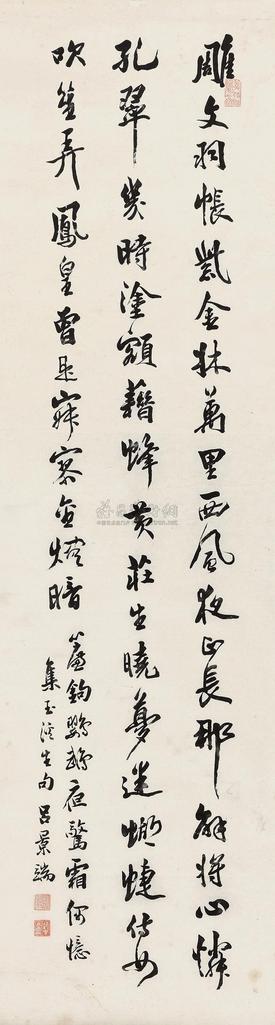 雕文羽帳紫金牀萬里西風夜正長那解將心憐
孔翠幾時塗額藉蜂黃莊生曉夢迷蝴蝶侍女
吹笙弄鳳皇曾是寂寥金燼暗
簾鉤鸚鵡夜驚霜何憶
集玉溪生句呂景端